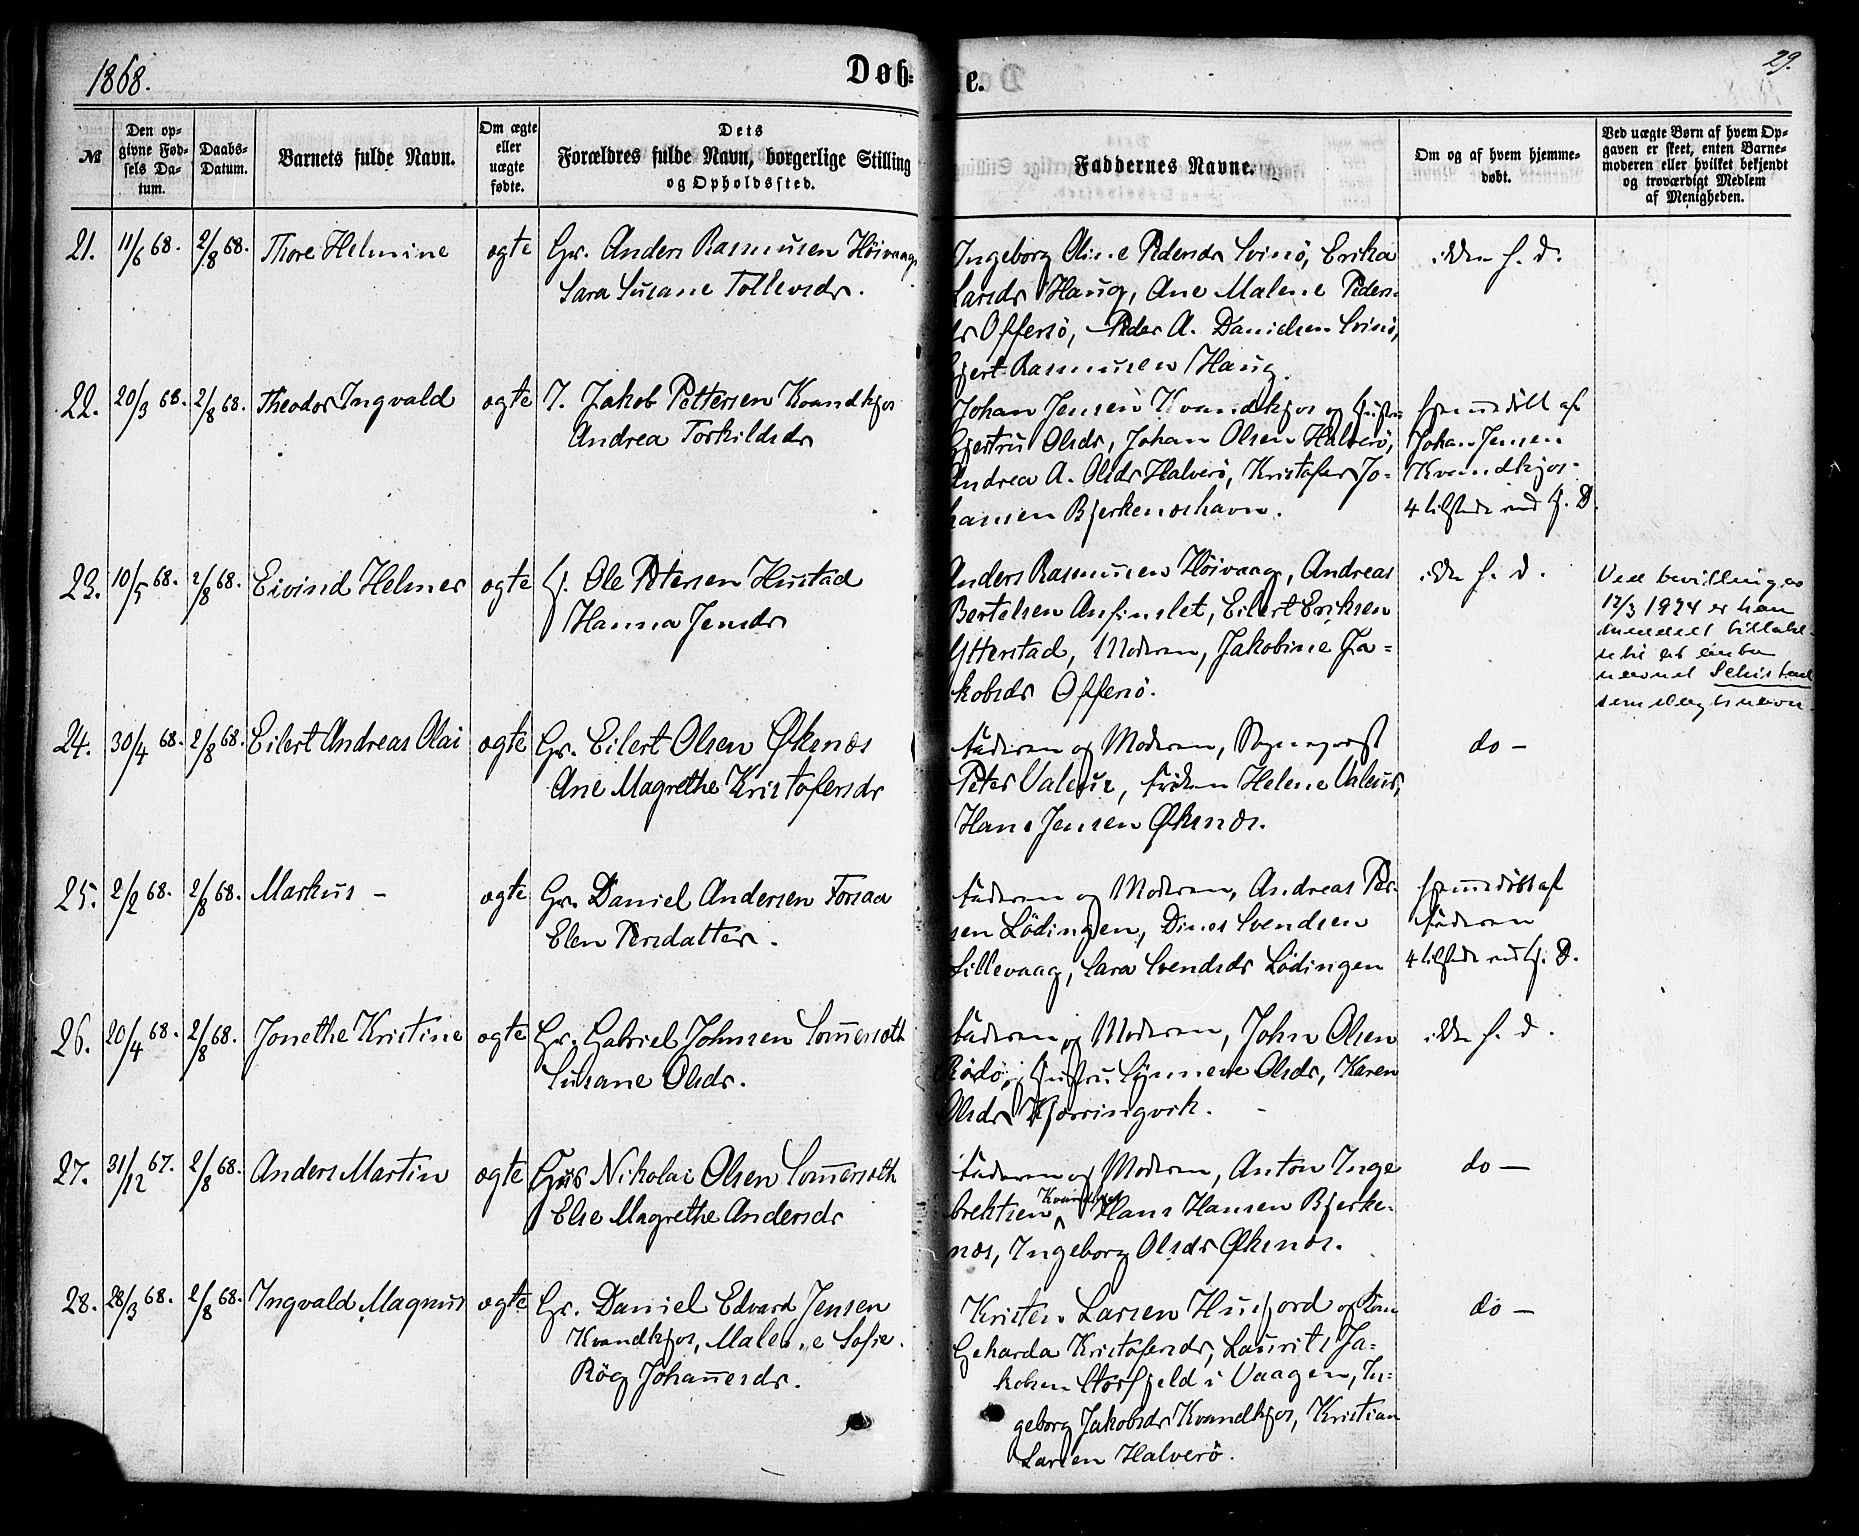 1868.
Døb-
e.
29.
№
Den opgivne Fødsels Datum.
Daabs-Datum.
Barnets fulde Navn.
Om ægte eller uægte fødte.
Dets Forældres fulde Navn, borgerlige Stilling og Opholdssted.
Faddernes Navne.
Om og af hvem hjemmedøbt.
Ved uægte Børn af hvem Opgaven er skeet, enten Barnemoderen eller hvilket bekjendt og troværdigt Medlem af Menigheden.
21. 11/6 68. 2/8 68. Thore Helmine ægte Gr. Anders Rasmusen Höivaag
Sara Susane Tollevsdr.
Ingeborg Oline Pedersdr Svinö, Erika
Larsdr Haug, Ane Malene Peders-
dr Offersö, Peder A. Danielsen Svinö,
Gjert Rasmusen Haug.
ikke h. d.
22. 20/3 68. 2/8 68. Theodor Ingvald ægte I. Jakob Pettersen Kvandkjos
Andrea Torkildsdr
Johan Jensen Kvandkjos og Hustru
Gjertru Olsdr, Johan Olsen Halverö,
Andrea A. Olsdr Halverö, Kristofer Jo-
hansen Bjerkenæshavn.
hjemmedöbt af
Johan Jensen
Kvandkjos.
4 tilstede ved h. D.
23. 10/5 68. 2/8 68. Eivind Helmer ægte Ole Petersen Hustad
Hanna Jensdr
Anders Rasmusen Höivaag, Andreas
Bertelsen Anfinslet, Eilert Eriksen
Ytterstad, Moderen, Jakobine Ja-
kobsdr Offersö.
ikke h. d.
Ved bevilling av
17/3 1924 er han
meddelt tillatel-
se til at anta
navnet
som slegtsnavn.
24. 30/4 68. 2/8 68. Eilert Andreas Olai ægte Gr. Eilert Olsen Øksnæs
Ane Magrethe Kristofersdr
Faderen og Moderen, Sogneprest
Peter Valeur, Fröken Helene Valeur,
Hans Jensen Øksnæs.
do —
25. 2/2 68. 2/8 68. Markus — ægte Gr. Daniel Andersen Forsaa
Elen Persdatter.
Faderen og Moderen, Andreas Per-
sen Lödingen, Dines Svendsen
Lillevaag, Sara Svendsdr Lödingen
hjemmedöbt af
Faderen
4 tilstede ved h. D.
26. 20/4 68. 2/8 68. Jonethe Kristine ægte Gr. Gabriel Johnsen Som̄ersæth
Susane Olsdr.
Faderen og Moderen, John Olsen
Rödö, Hustru Synneve Olsdr, Karen
Olsdr Kjærringvik.
ikke h. d.
27. 31/12 67. 2/8 68. Anders Martin ægte Nikolai Olsen Som̄ersæth
Else Magrethe Andersdr
Faderen og Moderen, Anton Inge
brektsen Kvandkjos Hans Hansen Bjerke-
næs, Ingeborg Olsdr Øksnæs.
do —
28. 28/3 68. 2/8 68. Ingvald Magnus ægte Gr. Daniel Edvard Jensen
Kvandkjos, Malene Sofie
Røg Johannesdr.
Kristen Larsen Husjord og Kone
Geharda Kristofersdr, Laurits Ja-
kobsen Storfjeld i Vaagen, In-
geborg Jakobsdr Kvandkjos, Kristian
Larsen Halverö.
do —